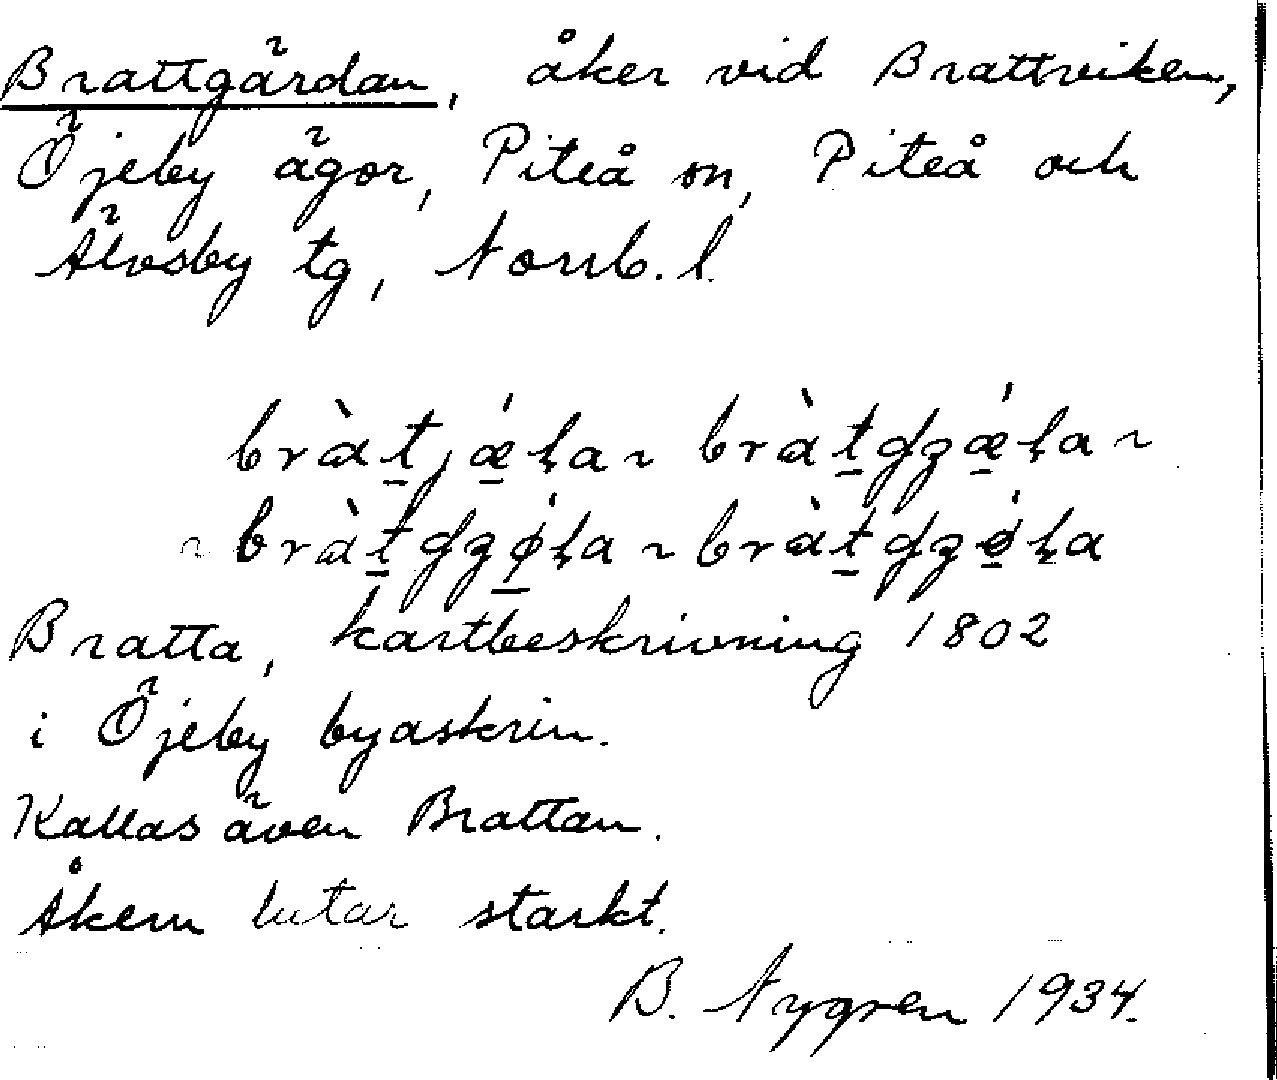 Brattgärdan, åker vid Brattviken,
Öjeby ägor, Piteå sn, Piteå och
Älvsby tg, Norrb. l.
bràt̲jǽ̲ḷa ~ bràt̲ʤǽ̲ḷa ~
~ bràt̲ʤǿ̲ḷa ~ bràt̲ʤɵ̲́ḷa
Bratta, kartbeskrivning 1802
i Öjeby byaskrin.
Kallas även Brattan.
Åkern lutar starkt.
B. Nygren 1934.